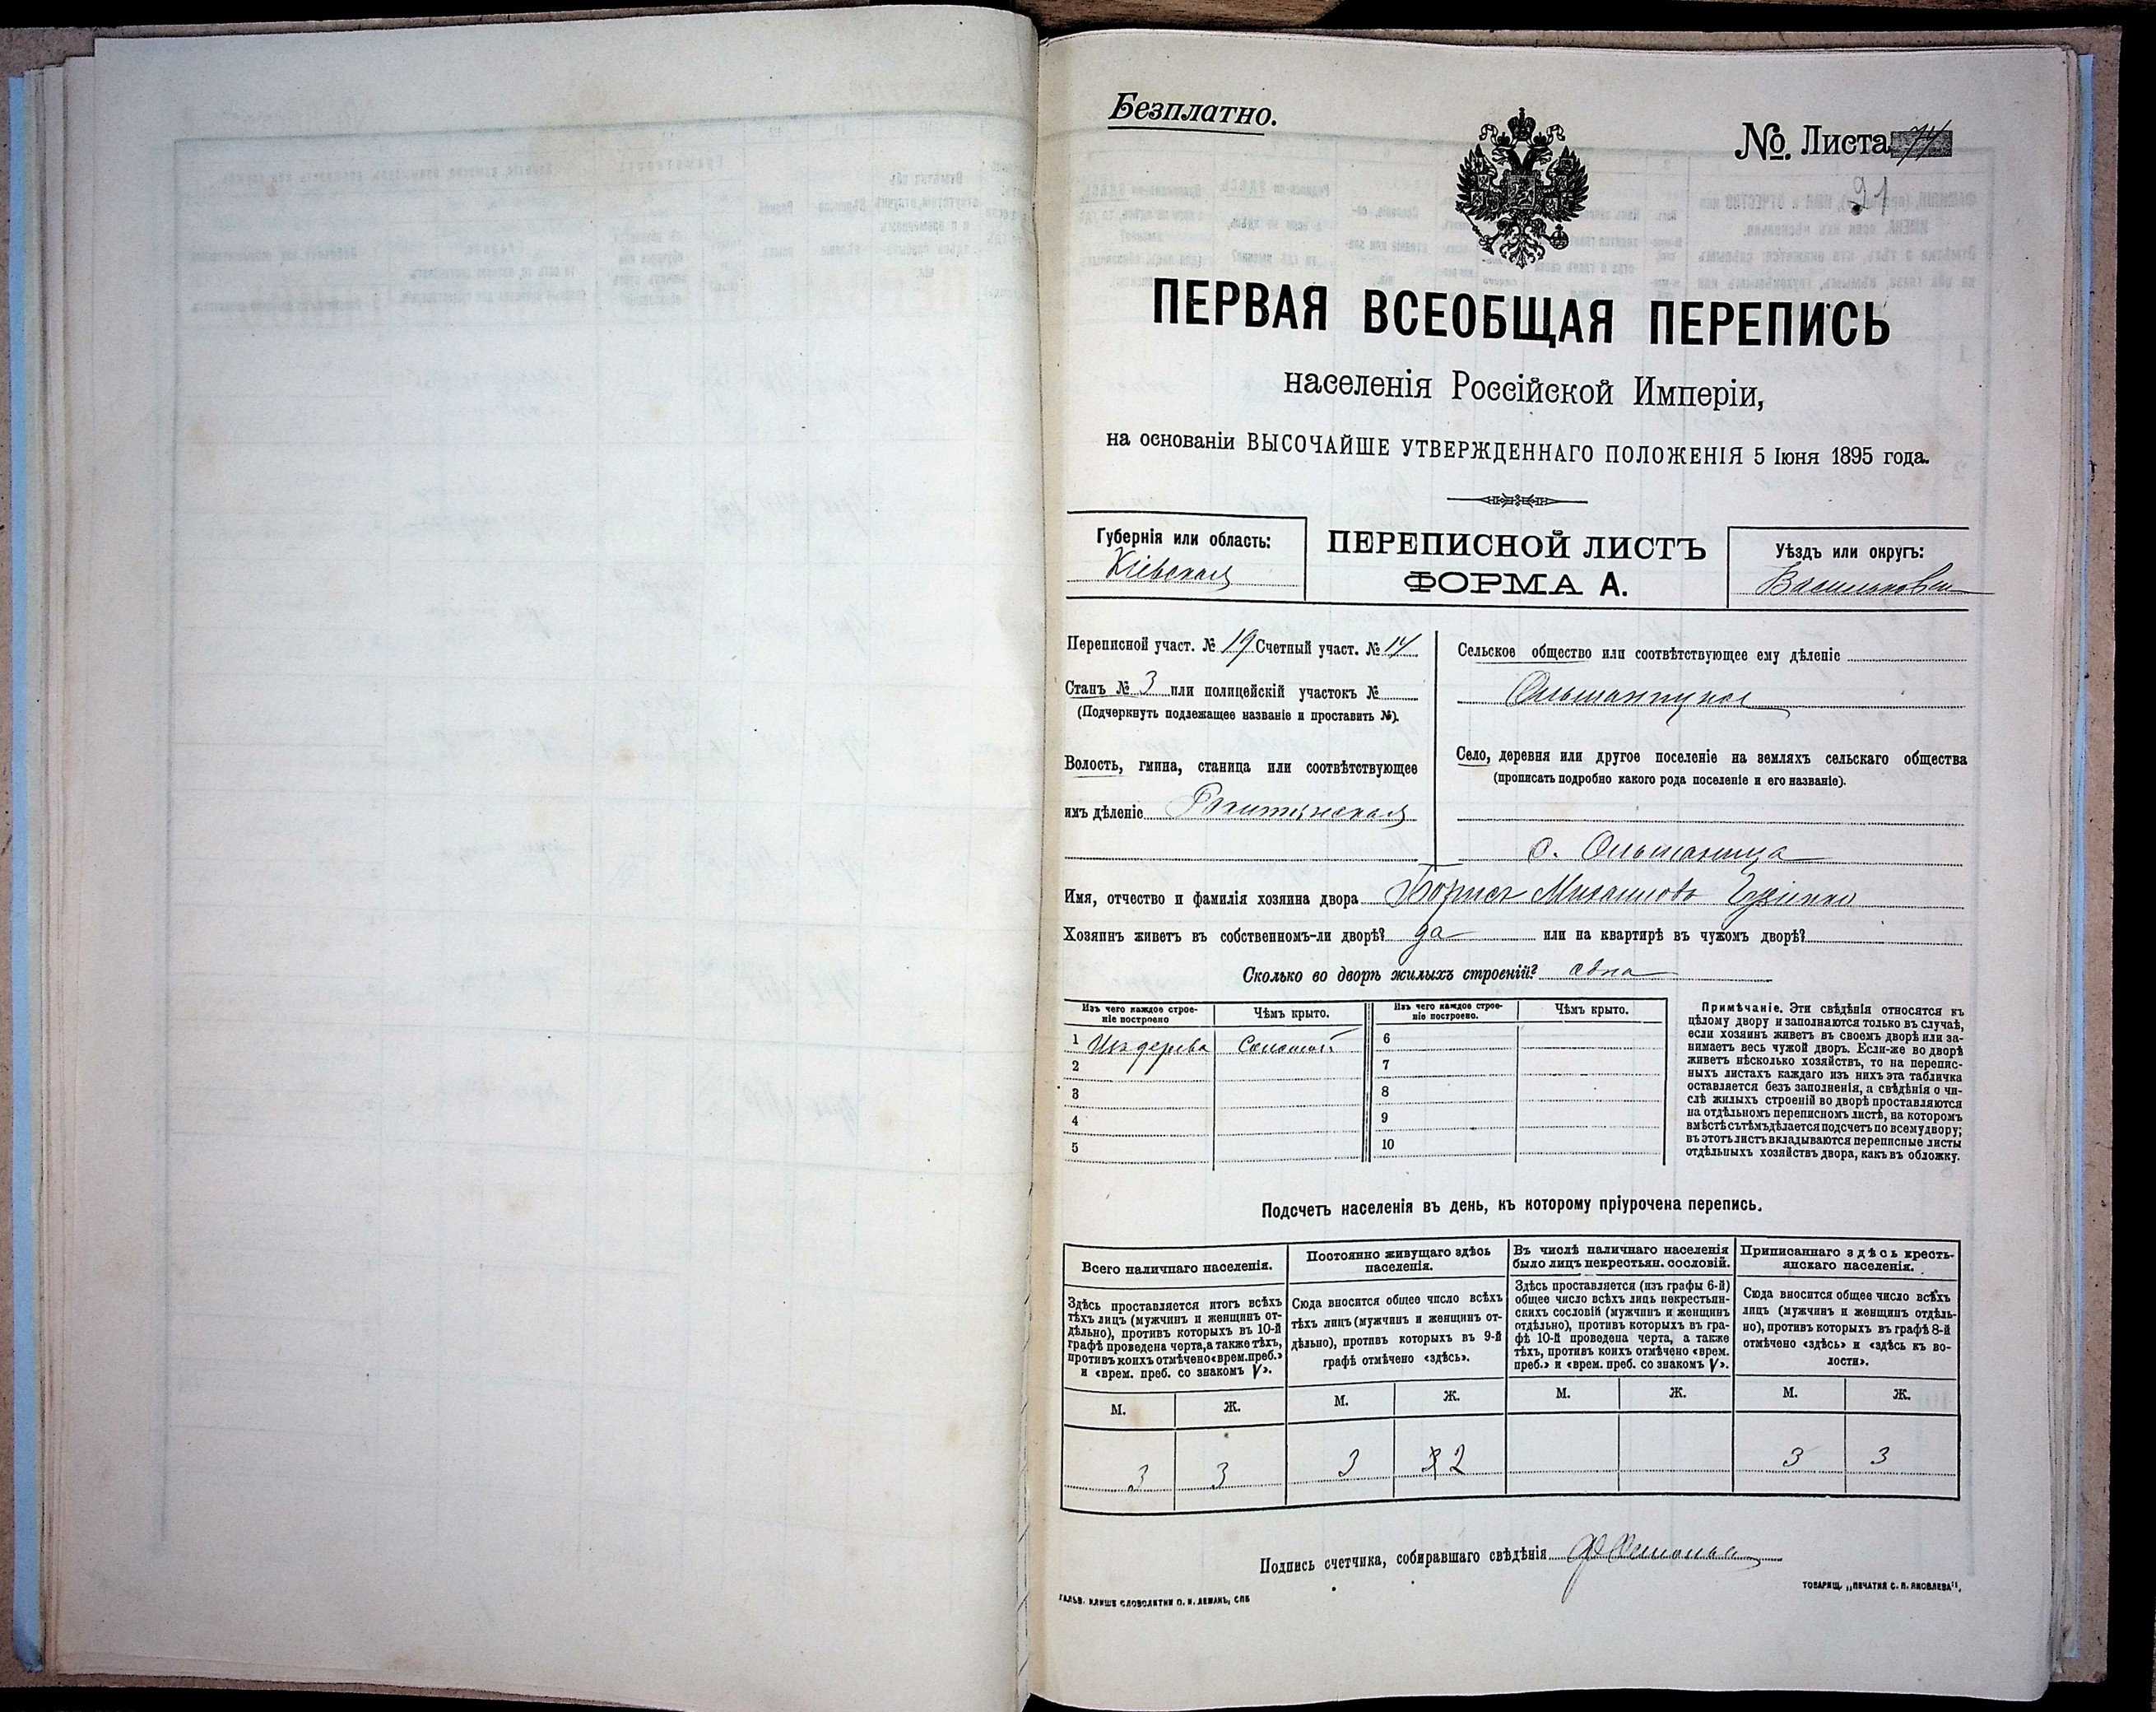 Безплатно.
№. Листа 74
21
ПЕРВАЯ ВСЕОБЩАЯ ПЕРЕПИСЬ
населенія Россійской Имперіи,
на основаніи ВЫСОЧАЙШЕ УТВЕРЖДЕННАГО ПОЛОЖЕНІЯ 5 Іюня 1895 года.
Губернія или область:
Кіевская
ПЕРЕПИСНОЙ ЛИСТЪ
ФОРМА А.
Уѣздъ или округъ:
Васильков
Переписной участ. № 19 Счетный участ. № 14
Станъ № 3 или полицейскій участокъ №
(Подчеркнуть подлежащее названіе и проставить №).
Волость, гмина, станица или соотвѣтствующее
имъ дѣленіе Рокитянская
Сельское общество или соотвѣтствующее ему дѣленіе
Ольшаницкое
Село, деревня или другое поселеніе на земляхъ сельскаго общества
(прописать подробно какого рода поселеніе и его названіе).
с. Ольшаница
Имя, отчество и фамилія хозяина двора Борисъ Михаиловъ
Хозяинъ живетъ въ собственномъ-ли дворѣ? да или на квартирѣ въ чужомъ дворѣ?
Сколько во дворѣ жилыхъ строеній? одна
Изъ чего каждое строе-
ніе построено
Чѣмъ крыто.
Изъ чего каждое строе-
ніе построено.
Чѣмъ крыто.
1 Изъ дерева Соломой 6
2 7
3 8
4 9
5 10
Примѣчаніе. Эти свѣдѣнія относятся къ
цѣлому двору и заполняются только въ случаѣ,
если хозяинъ живетъ въ своемъ дворѣ или за-
нимаетъ весь чужой дворъ. Если-же во дворѣ
живетъ нѣсколько хозяйствъ, то на перепис-
ныхъ листахъ каждаго изъ нихъ эта табличка
оставляется безъ заполненія, а свѣдѣнія о чи-
слѣ жилыхъ строеній во дворѣ проставляются
на отдѣльномъ переписномъ листѣ, на которомъ
вмѣстѣ съ тѣмъ дѣлается подсчетъ по всему двору;
въ этотъ листъ вкладываются переписные листы
отдѣльныхъ хозяйствъ двора, какъ въ обложку.
Подсчетъ населенія въ день, къ которому пріурочена перепись.
Всего наличнаго населенія.
Здѣсь проставляется итогъ всѣхъ
тѣхъ лицъ (мужчинъ и женщинъ от-
дѣльно), противъ которыхъ въ 10-й
графѣ проведена черта, а также тѣхъ,
противъ коихъ отмѣчено «врем. преб.»
и «врем. преб. со знакомъ V».
Постоянно живущаго здѣсь
населенія.
Сюда вносится общее число всѣхъ
тѣхъ лицъ (мужчинъ и женщинъ от-
дѣльно), противъ которыхъ въ 9-й
графѣ отмѣчено «здѣсь».
Въ числѣ наличнаго населенія
было лицъ некрестьян. сословій.
Здѣсь проставляется (изъ графы 6-й)
общее число всѣхъ лицъ некрестьян-
скихъ сословій (мужчинъ и женщинъ
отдѣльно), противъ которыхъ въ гра-
фѣ 10-й проведена черта, а также
тѣхъ, противъ коихъ отмѣчено «врем.
преб.» и «врем. преб. со знакомъ V».
Приписаннаго здѣсь кресть-
янскаго населенія.
Сюда вносится общее число всѣхъ
лицъ (мужчинъ и женщинъ отдѣль-
но), противъ которыхъ въ графѣ 8-й
отмѣчено «здѣсь» и «здѣсь къ во-
лости».
М. Ж. М. Ж. М. Ж. М. Ж.
3 3 3 3 2 3 3
Подпись счетчика, собиравшаго свѣдѣнія
ГАЛЬВ. КЛИШЕ СЛОВОЛИТНИ О. И. ЛЕМАНЪ, СПБ
ТОВАРИЩ. „ПЕЧАТНЯ С. П. ЯКОВЛЕВА“.